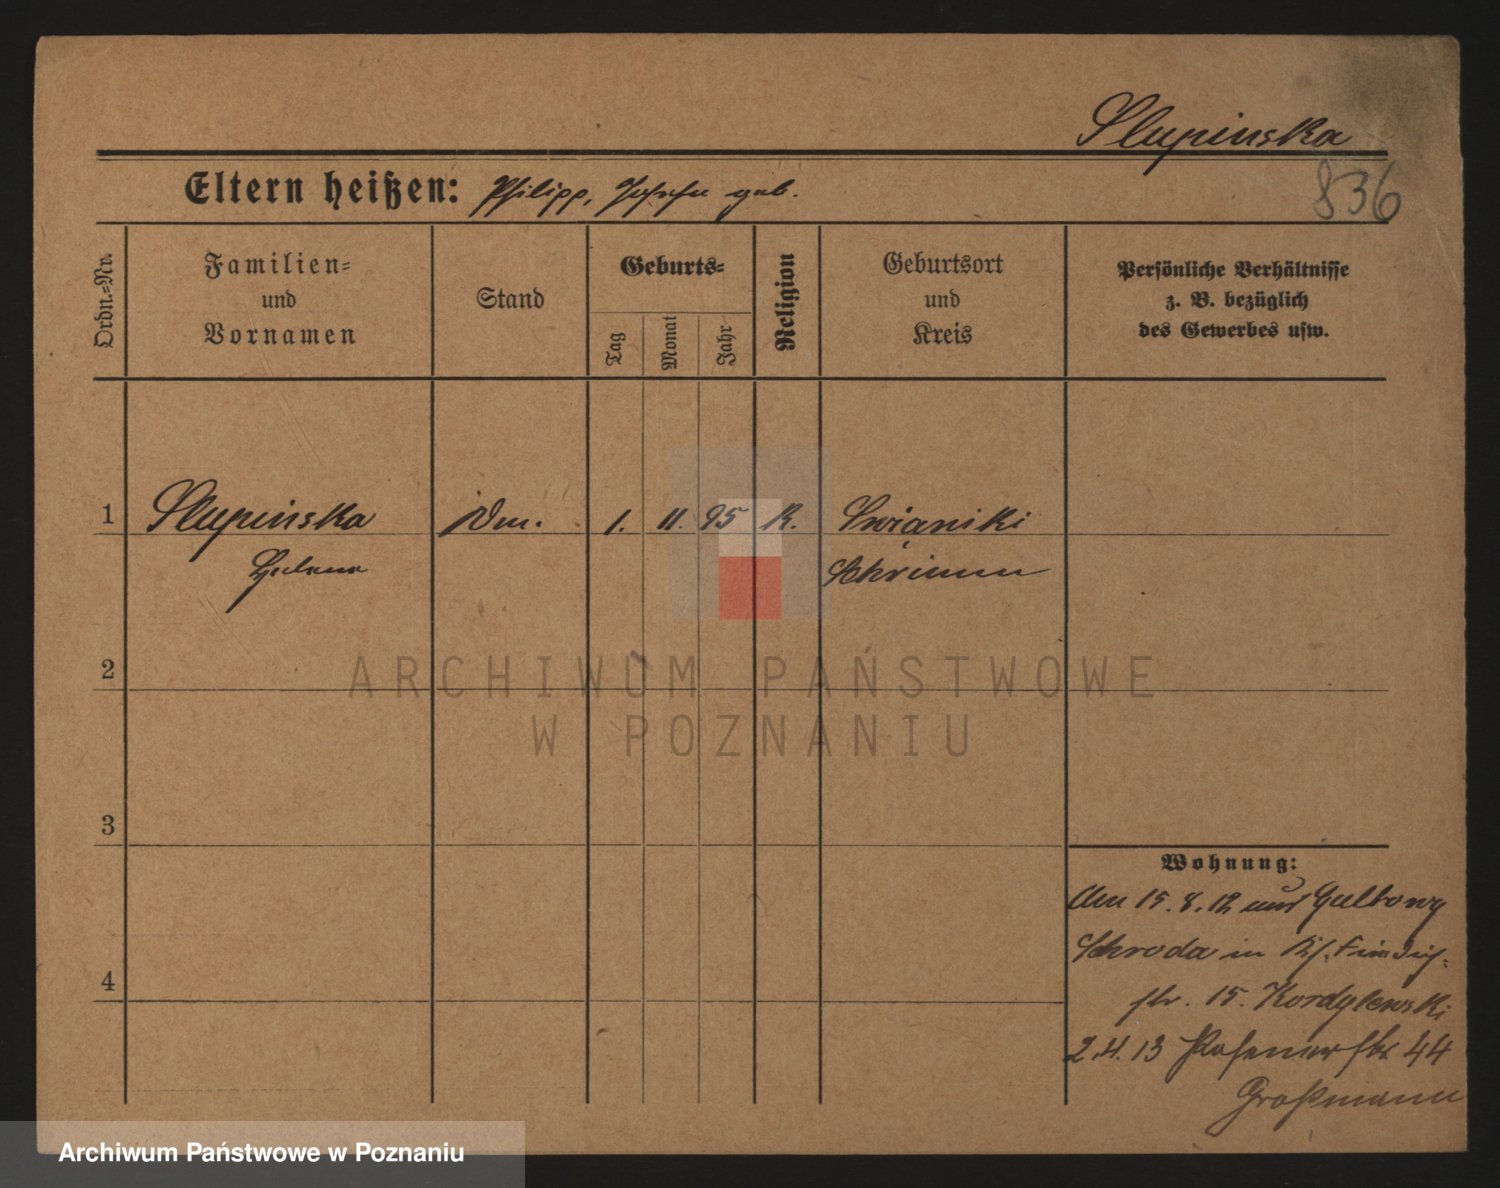 Slupinska
836
Eltern heißen: Philipp, Josefa geb.
Ordn.-Nr.
Familien-
und
Vornamen
Stand
Geburts-
Tag
Monat
Jahr
Religion
Geburtsort
und
Kreis
Persönliche Verhältnisse
z. B. bezüglich
des Gewerbes usw.
1 Slupinska 1. 11. 95 K.
Helena Schrimm
2
ARCHIWUM PAŃSTWOWE
W POZNANIU
3
Wohnung:
Am 15.8.12 aus
Schroda in
4
str. 15. Kordylewski
2.4.13 Posener str 44
Großmann
Archiwum Państwowe w Poznaniu